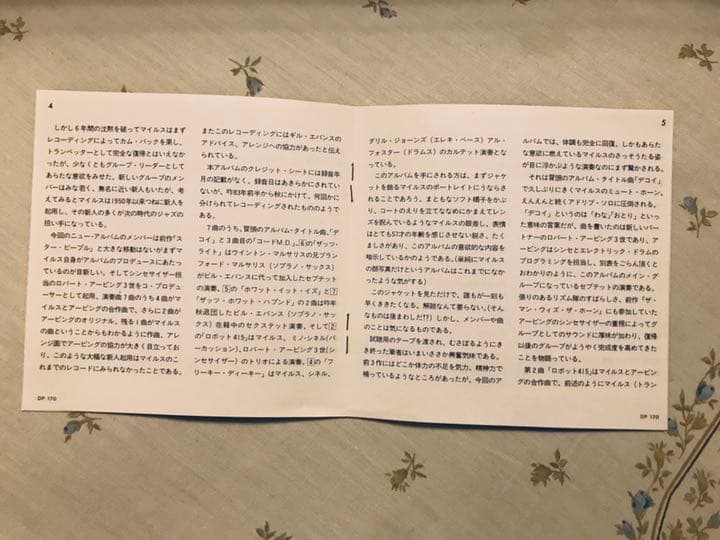 4
しかし6年間の沈黙を破ってマイルスはまず
レコーディングによってカム・バックを果し、
トランペッターとして完全な復帰とはいえなか
ったが、少なくともグループ・リーダーとして
あらたな意欲をみせた。新しいグループのメン
バーはみな若く、無名に近い新人もいたが、考
えてみるとマイルスは1950年以来つねに新人を
起用し、その新人の多くが次の時代のジャズの
担い手になっている。
今回のニュー・アルバムのメンバーは前作「ス
ター・ピープル」と大きな移動はないがまずマ
イルス自身がアルバムのプロデュースにあたっ
ているのが目新しい。そしてシンセサイザー担
当のロバート・アービング3世をコ・プロデュ
ーサーとして起用、演奏曲7曲のうち4曲がマ
イルスとアービングの合作で、さらに2曲が
アービングのオリジナル、残る1曲がマイルス
の曲ということからもわかるように作曲、アレ
ンジ面でアービングの協力が大きく目立ってお
り、このような大幅な新人起用はマイルスのこ
れまでのレコードにみられなかったことである。
またこのレコーディングにはギル・エバンスの
アドバイス、アレンジへの協力があったと伝え
られている。
本アルバムのクレジット・シートには録音年
月の記載がなく、録音日はあきらかにされてい
ないが、昨83年前半から秋にかけて、何回かに
分けられてレコーディングされたもののようであ
る。
7曲のうち、冒頭のアルバム・タイトル曲、「デ
コイ」と3曲目の「コードM.D.」、⑥の「ザッツ・
ライト」はウイントン・マルサリスの兄ブラン
フォード・マルサリス（ソプラノ・サックス）
がビル・エバンスに代って加入したセプテット
の演奏、⑤の「ホワット・イット・イズ」と⑦
「ザッツ・ホワット・ハプンド」の2曲は昨年
秋退団したビル・エバンス（ソプラノ・サッ
クス）在籍中のセクステット演奏、そして②
の「ロボット415」はマイルス、ミノ・シネル（パ
ーカッション）、ロバート・アービング3世（シ
ンセサイザー）のトリオによる演奏、④の「フ
リーキー・ディーキー」はマイルス、シネル、
DP 170
5
ダリル・ジョーンズ（エレキ・ベース）アル・
フォスター（ドラムス）のカルテット演奏とな
っている。
このアルバムを手にされる方は、まずジャケ
ットを飾るマイルスのポートレイトにうならさ
れることであろう。まともなソフト帽子をかぶ
り、コートのえりを立ててななめにかまえてレン
ズを睨んでいるようなマイルスの眼差し、表情
はとても57才の年齢を感じさせない鋭さ、たく
ましさがあり、このアルバムの意欲的な内容を
暗示しているかのようである。（単純にマイルス
の顔写真だけというアルバムはこれまでになか
ったような気がする）
このジャケットを見ただけで、誰もが一刻も
早くききたくなる、解説なんて要らない。（そん
なものは後まわしだ!?）しかし、メンバーや曲
のことは気になるものである。
試聴用のテープを渡され、むさぼるようにき
き終った筆者はいまいささか興奮気味である。
前3作にはどこか体力の不足を気力、精神力で
補っているようなところがあったが、今回のア
ルバムでは、体調も完全に回復、しかもあらた
な意欲に燃えているマイルスのさっそうたる姿
が目に浮かぶような演奏なのにまず驚かされる。
それは冒頭のアルバム・タイトル曲「デコイ」
で久しぶりにきくマイルスのミュート・ホーン、
えんえんと続くアドリブ・ソロに圧倒される。
「デコイ」というのは「わな」「おとり」といっ
た意味の言葉だが、曲を書いたのは新しいパー
トナーのロバート・アービング3世であり、ア
ービングはシンセとエレクトリック・ドラムの
プログラミングを担当し、別表をごらん頂くと
おわかりのように、このアルバムのメイン・グ
ループになっているセプテットの演奏である。
張りのあるリズム隊のすばらしさ、前作「ザ・
マン・ウィズ・ザ・ホーン」にも参加していた
アービングのシンセサイザーの重視によってグル
ープとしてのサウンドに厚味が加わり、復帰
以後のグループがようやく完成度を高めてきた
ことを物語っている。
第2曲「ロボット415」はマイルスとアービン
グの合作曲で、前述のようにマイルス（トラン
DP 170